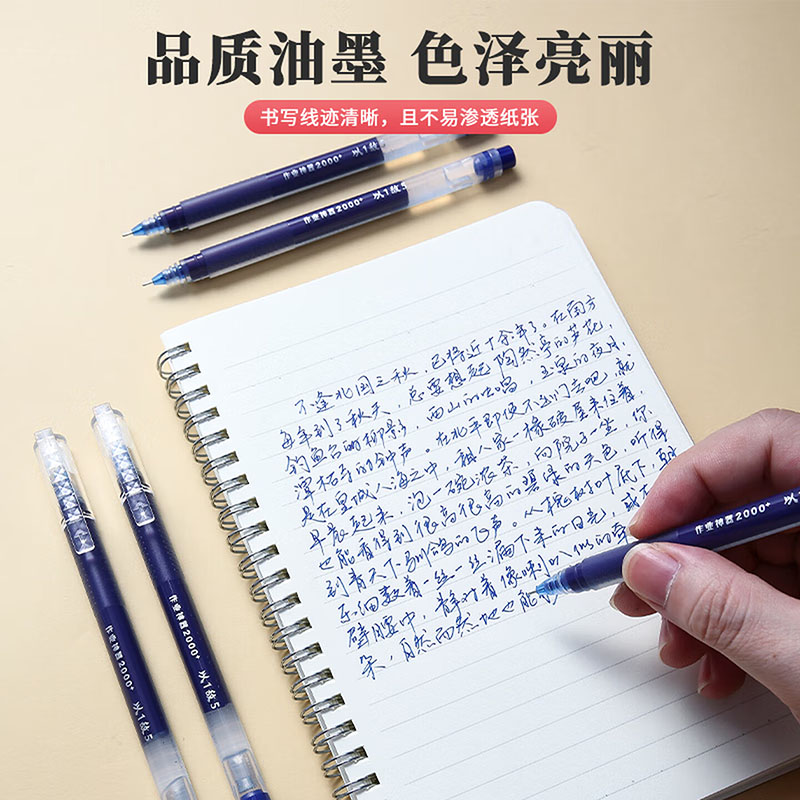 品质油墨 色泽亮丽
书写线迹清晰，且不易渗透纸张
作业神器2000⁺ 以1敌5
作业神器2000⁺ 以1敌5
不逢北国之秋，已将近十余年了。在南方
每年到了秋天，总要想起陶然亭的芦花，
钓鱼台的柳影，西山的虫唱，玉泉的夜月，
潭柘寺的钟声。在北平即使不出门去吧，就
是在皇城人海之中，租人家一椽破屋来住着，
早晨起来，泡一碗浓茶，向院子一坐，你
也能看得到很高很高的碧绿的天色，听得
到青天下驯鸽的飞声。从槐树叶底下，朝
东细数着一丝一丝漏下来的日光，或
壁腰中，静对着像喇叭似的牵
朵，自然而然地也能
作业神器2000⁺ 以
作业神器2000⁺ 以1敌5
作业神器2000⁺ 以1敌5